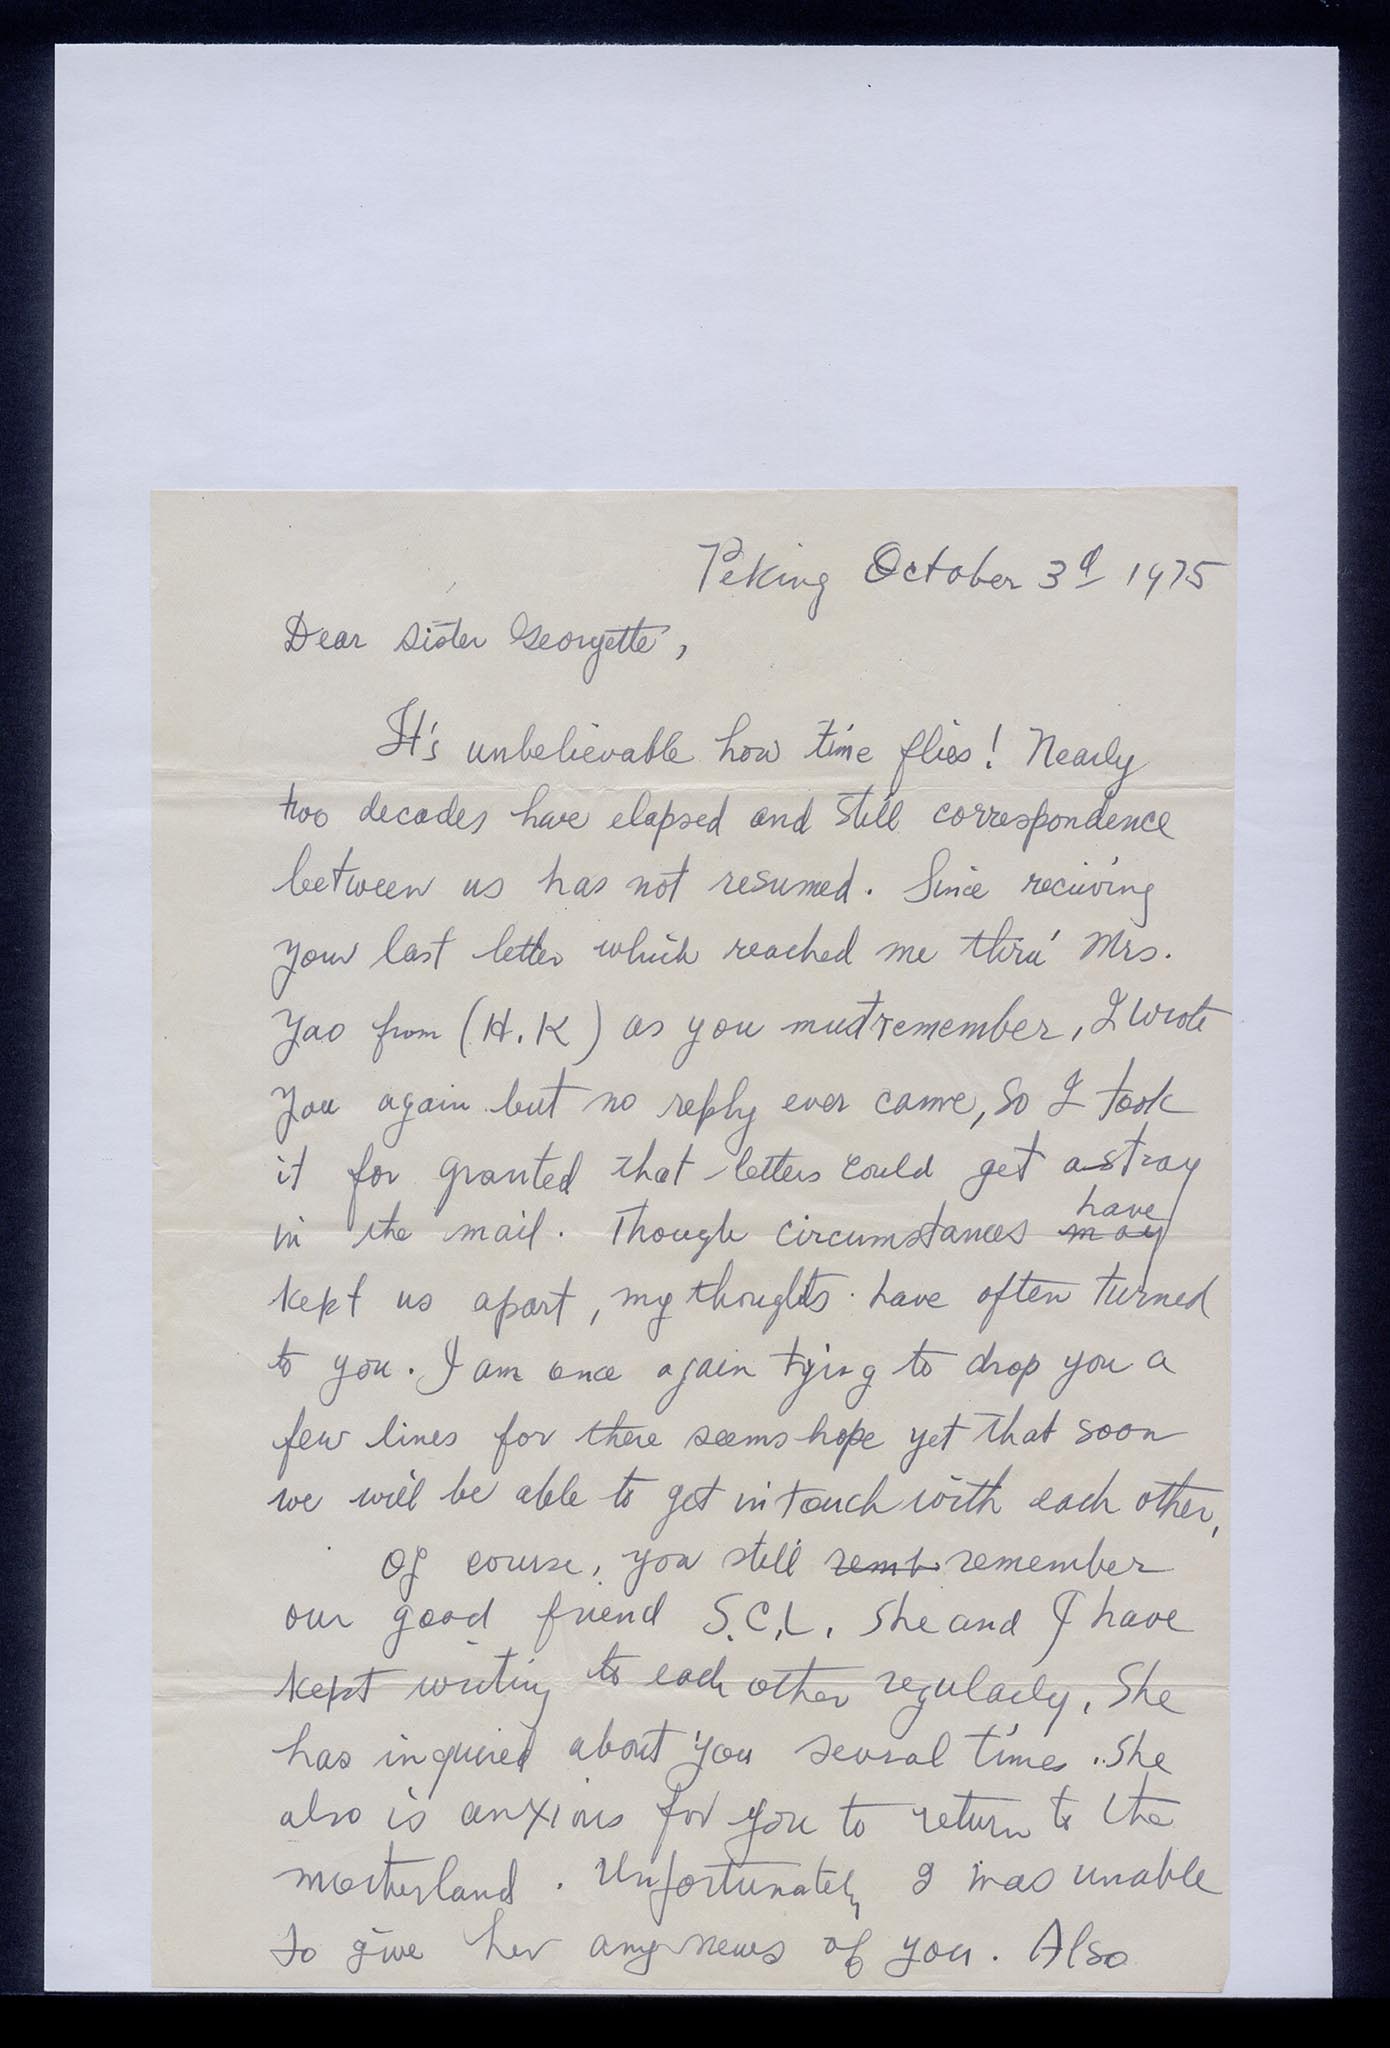 Peking October 3d 1975
Dear Sister Georgette,
It's unbelievable how time flies! Nearly
two decades have elapsed and still correspondence
between us has not resumed. Since receiving
your last letter which reached me thru' Mrs.
Yao from (H.K) as you must remember, I wrote
you again but no reply ever came, so I took
it for granted that letters could get astray
in the mail. Though circumstances may have
kept us apart, my thoughts have often turned
to you. I am once again trying to drop you a
few lines for there seems hope yet that soon
we will be able to get in touch with each other,
Of course, you still remb remember
our good friend S.C.L. She and I have
kept writing to each other regularly. She
has inquired about you several times. She
also is anxious for you to return to the
motherland. Unfortunately I was unable
to give her any news of you. Also